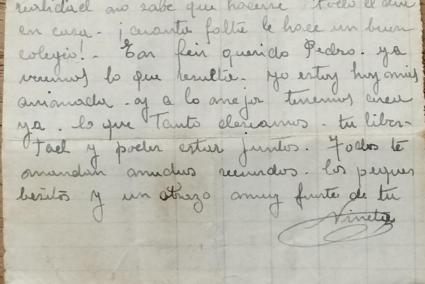 realidad no sabe que hacerse todo el dia
en casa. ¡cuanta falta le hace un buen
colegio!. En fin querido Pedro. ya
veremos lo que resulta. yo estoy hoy mas
animada. y a lo mejor tenemos cerca
ya. lo que Tanto deseamos. tu liber-
tad y poder estar juntos. Todos te
mandan muchos recuerdos. los peques
besitos y un abrazo muy fuerte de tu
Nineta